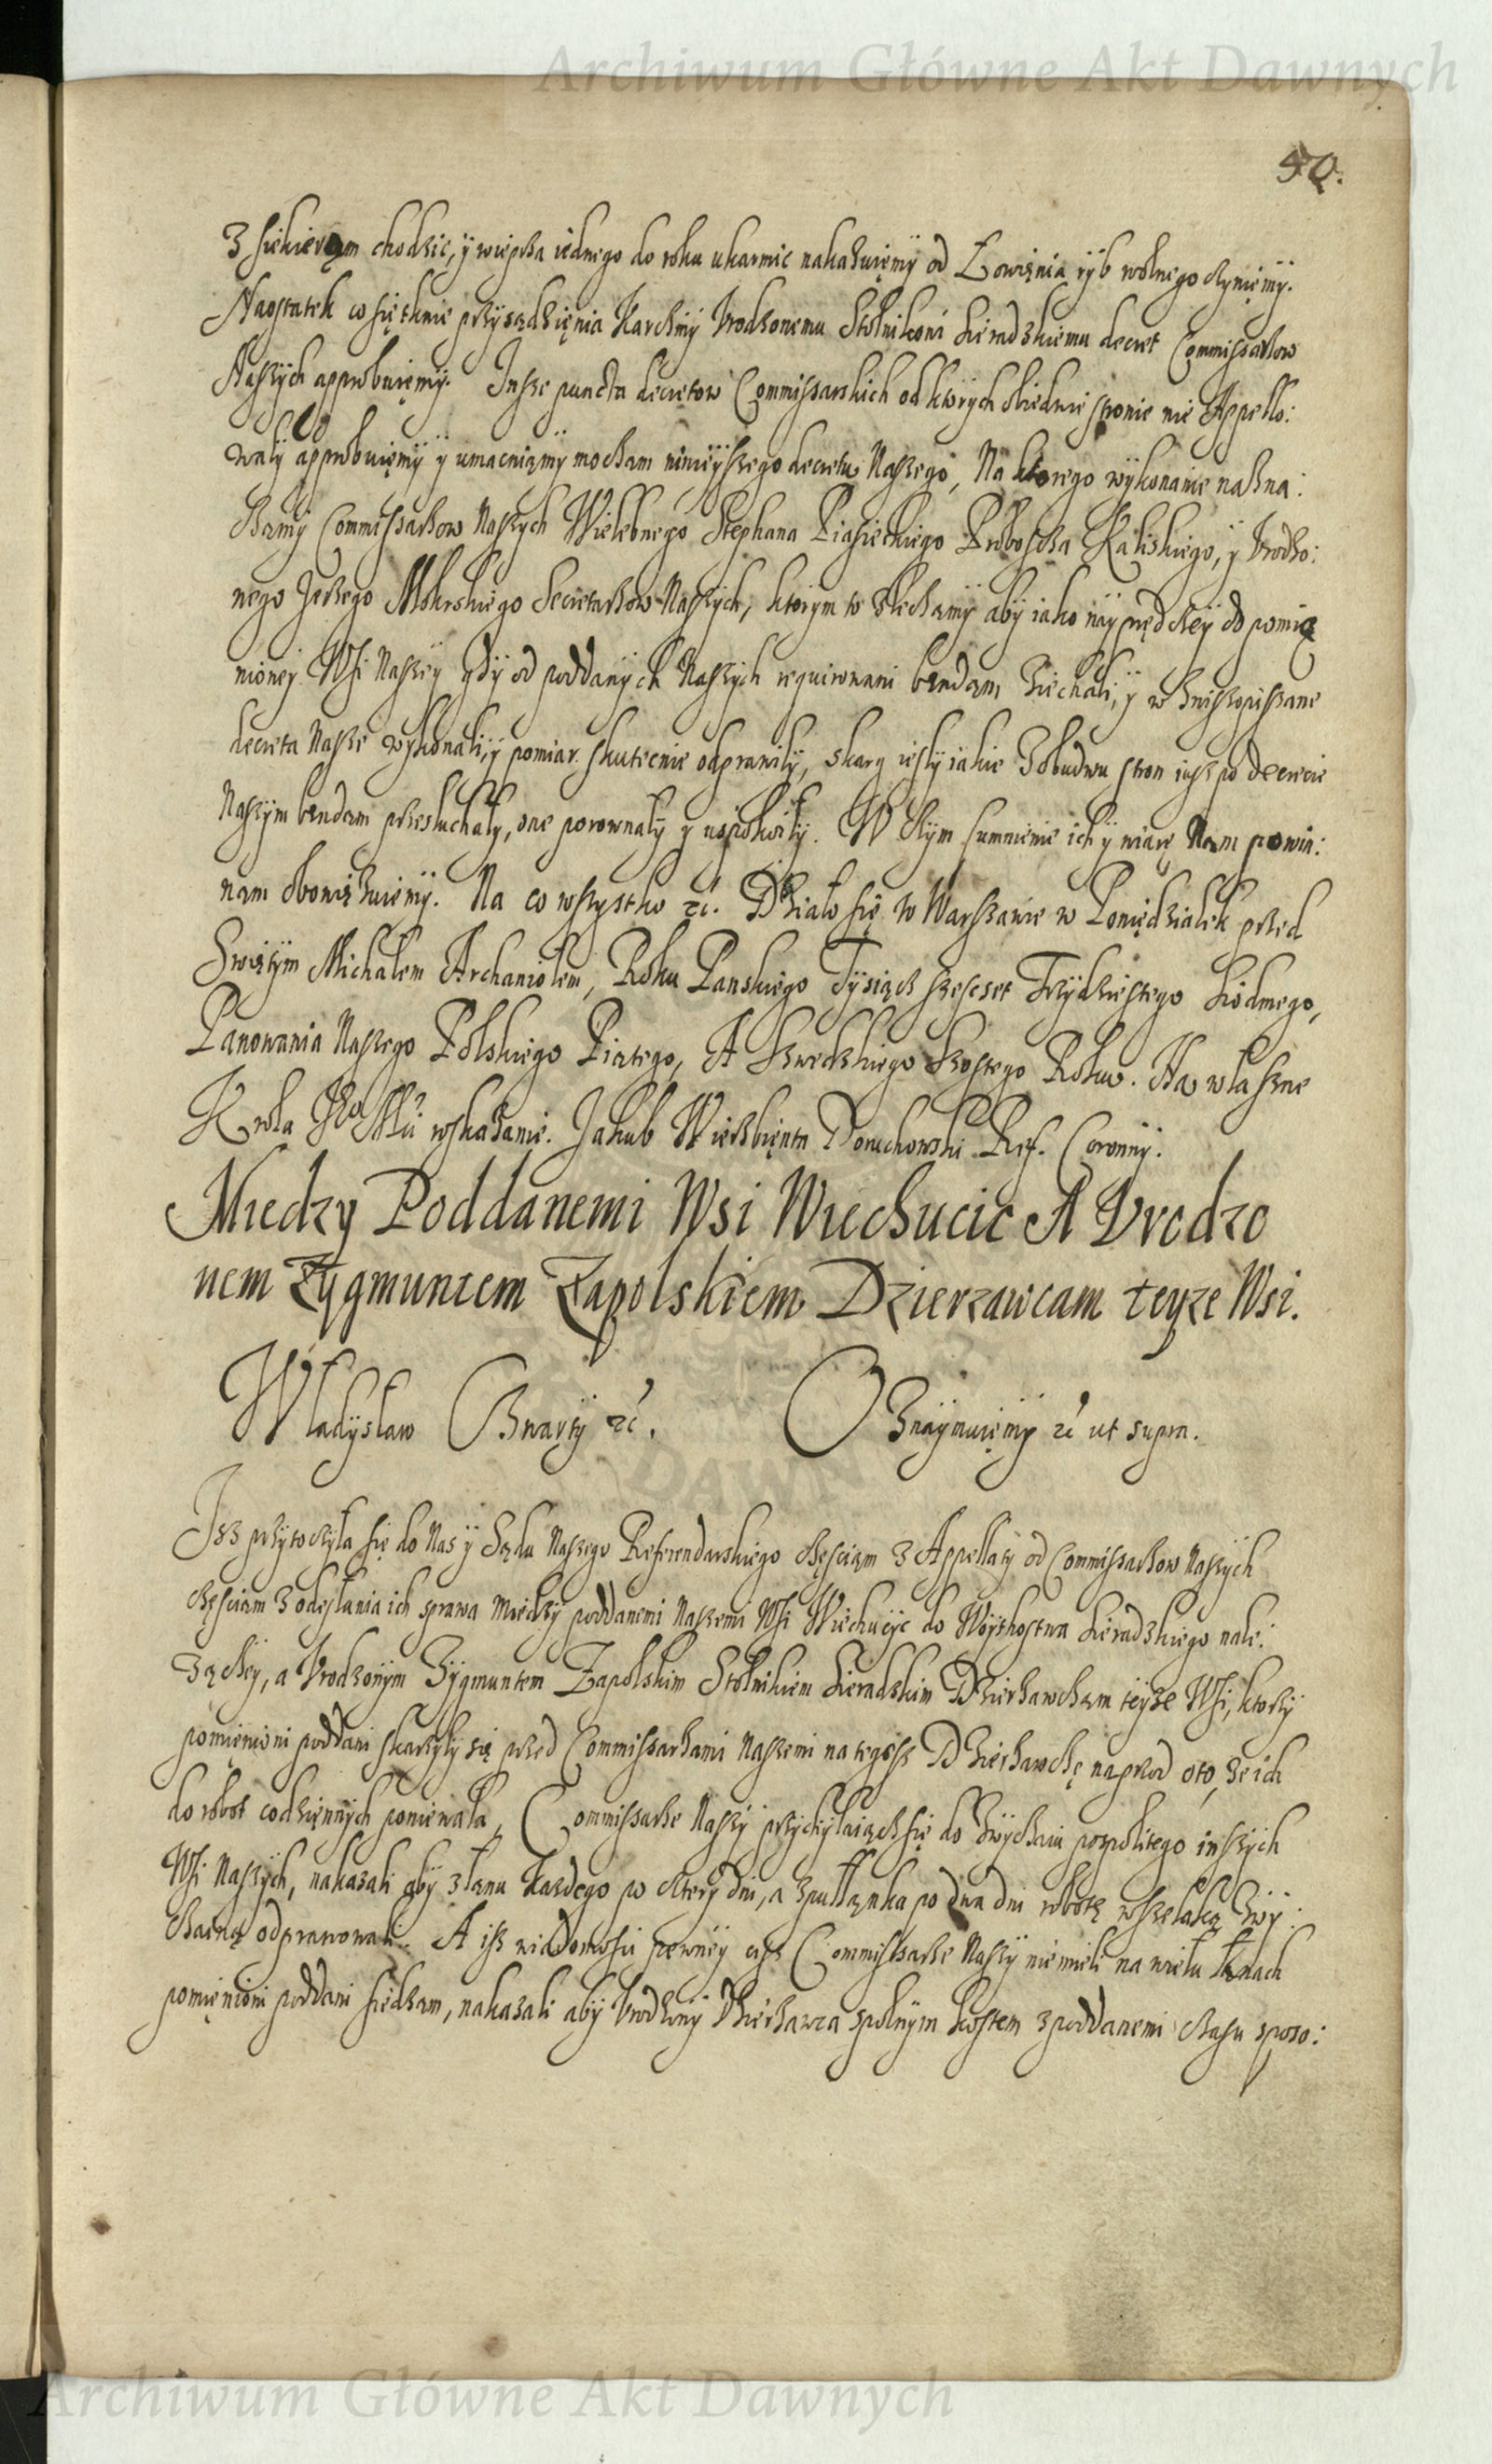 Archiwum Główne Akt Dawnych
50.
z siekierąm chodzic, ÿ wieprza iednego do roku ukarmic nakazuięmÿ od Łowięnia rÿb wolnego czÿnięmÿ.
Naostatek co się tknie przÿsądzięnia Karczmÿ Vrodzonemu Stolnikoni Sieradzkiemu decret Commissarzow
Naszÿch approbuięmÿ. Insze puncta decretow Commissarskich od ktorÿch obiedwie stronie nie Appello:
walÿ approbuięmÿ ÿ umacniąmÿ mocham ninieÿszego decretu Naszego, Na ktorego wÿkonanie nazna:
czamÿ Commissarzow Naszÿch Wielebnego Stephana Piasieckiego Proboscza Kaliskiego, ÿ Vrodzo:
nego Jerzego Mokrskiego Secretarzow Naszÿch, ktorÿm to zlechamÿ abÿ iako naÿprędzeÿ do pomię
nioneÿ Wsi Naszeÿ gdÿ od poddanÿch Naszÿch requirowani bendąm ziechali, ÿ w zwiszopiszane
decreta Nasze wÿkonali, ÿ pomiar skutecnie odprawilÿ, skarg iesly iakie z obudwu stron iusz po decrecie
Naszÿm bendąm przesluchalÿ, one porownalÿ ÿ uspokoilÿ. W czÿm sumnienie ich ÿ wiarę Nam powin:
nąm obowięzuiemÿ. Na co wszystko etc. Działo się w Warszawie w Poniędzialek przed
Swiętÿm Michałem Archaniołem, Roku Panskiego Tÿsiącz szescset Trzÿdziestego Siodmego,
Panowania Naszego Polskiego Piątego, A Szwedzkiego Szostego Roku. Na właszne
Krola Je° Mci wskazanie. Jakub Wierzbięnta Doruchowski Ref. Coronnÿ.
Miedzy Poddanemi Wsi Wiechucic A Vrodzo
nem Zygmuntem Zapolskiem Dzierzawcam teyze Wsi.
Władÿsław Czwartÿ etc. Oznaÿmuięmÿ etc ut supra.
Isz przÿtoczÿła się do Nas ÿ Sądu Naszego Referendarskiego częsciąm z Appellatÿ od Commissarzow Naszÿch
częsciąm z odesłania ich sprawa miedzÿ poddanemi Naszemi Wsi Wiechucÿc do Woÿthostwa Sieradzkiego nale:
zączeÿ, a Vrodzonÿm Zÿgmuntem Zapolskim Stolnikiem Sieradzkim Dzierzawcząm teÿze Wsi, ktorzÿ
pomięnioni poddani skarzÿlÿ się przed Commissarzami Naszemi na tegosz Dzierzawczę naprzod oto, ze ich
do robot codzięnnÿch poniewala, Commissarze Naszÿ przÿchÿlaiączsię do zwÿczaiu pospolitego inszÿch
Wsi Naszÿch, nakazali abÿ z łanu kazdego po czterÿ dni, a z pułłanka po dwa dni robotę wszelaką zwÿ:
czainą odprawowali. A isz wiadomosci pewneÿ cisz Commissarze Naszÿ niemieli na wielu łanach
pomięnioni poddani siedzam, nakazali abÿ Vrodzonÿ Dzierzawca spolnÿm kosztem z poddanemi czasu sposo:
Archiwum Główne Akt Dawnych